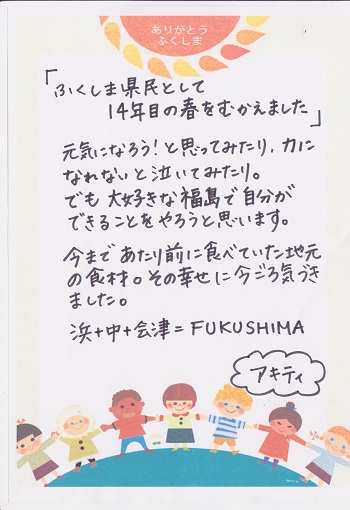 ありがとう
ふくしま
「ふくしま県民として
14年目の春をむかえました」
元気になろう!と思ってみたり、力に
なれないと泣いてみたり。
でも大好きな福島で自分が
できることをやろうと思います。
今まであたり前に食べていた地元
の食材。その幸せに今ごろ気づき
ました。
浜+中+会津=FUKUSHIMA
アキティ